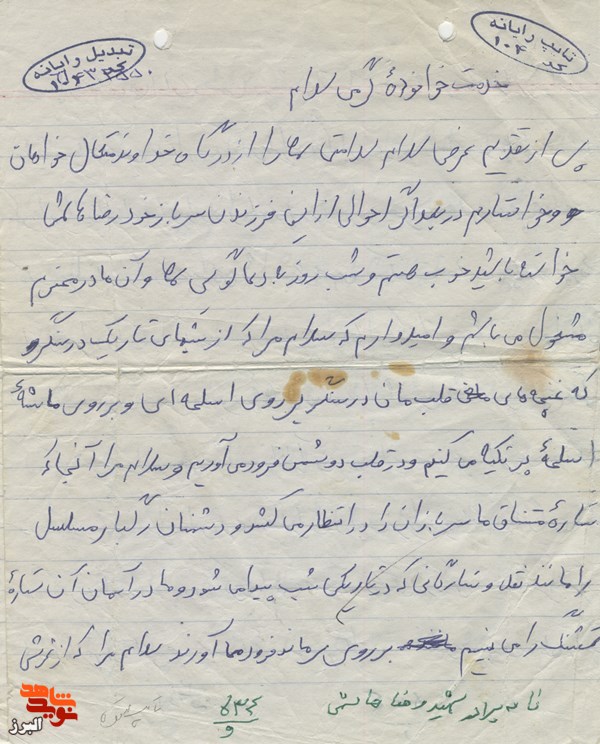 تایپ رایانه
کد ۱۰۴
تبدیل رایانه
خدمت خانواده گرمی سلام
پس از تقدیم عرض سلام سلامتی شما را از درگاه خداوند متعال خواهان
و خواستارم در بعد اگر احوالی از این فرزندان سرباز خود رضا هاشمی
خواسته باشید خوب هستم و شب روز به دعاگویی شما و آن مادر محترم
مشغول می باشم و امیدوارم که سلام مرا که از شبهای تاریک در سنگر و
که غنچه های قلب مان در سنگر بر روی اسلحه ای و بر روی ماشهٔ
اسلحهٔ پر تکیه می کنیم و در قلب دوشمن فرود می آوریم و سلام مرا آنجا که
ستارهٔ مشتاق ما سربازان را در انتظار می کشد و دشمنان رگبار مسلسل
را مانند نقل و ستارگانی که در تاریکی شب پیدا می شود و ما در آسمان آن ستارهٔ
قشنگ را می بینیم بر روی سر ما ند فرود می آورند سلام مرا که از ترشی
نامه برادر شهید رضا هاشمی
۵۳۴
۹
شاهد
نوید
البرز